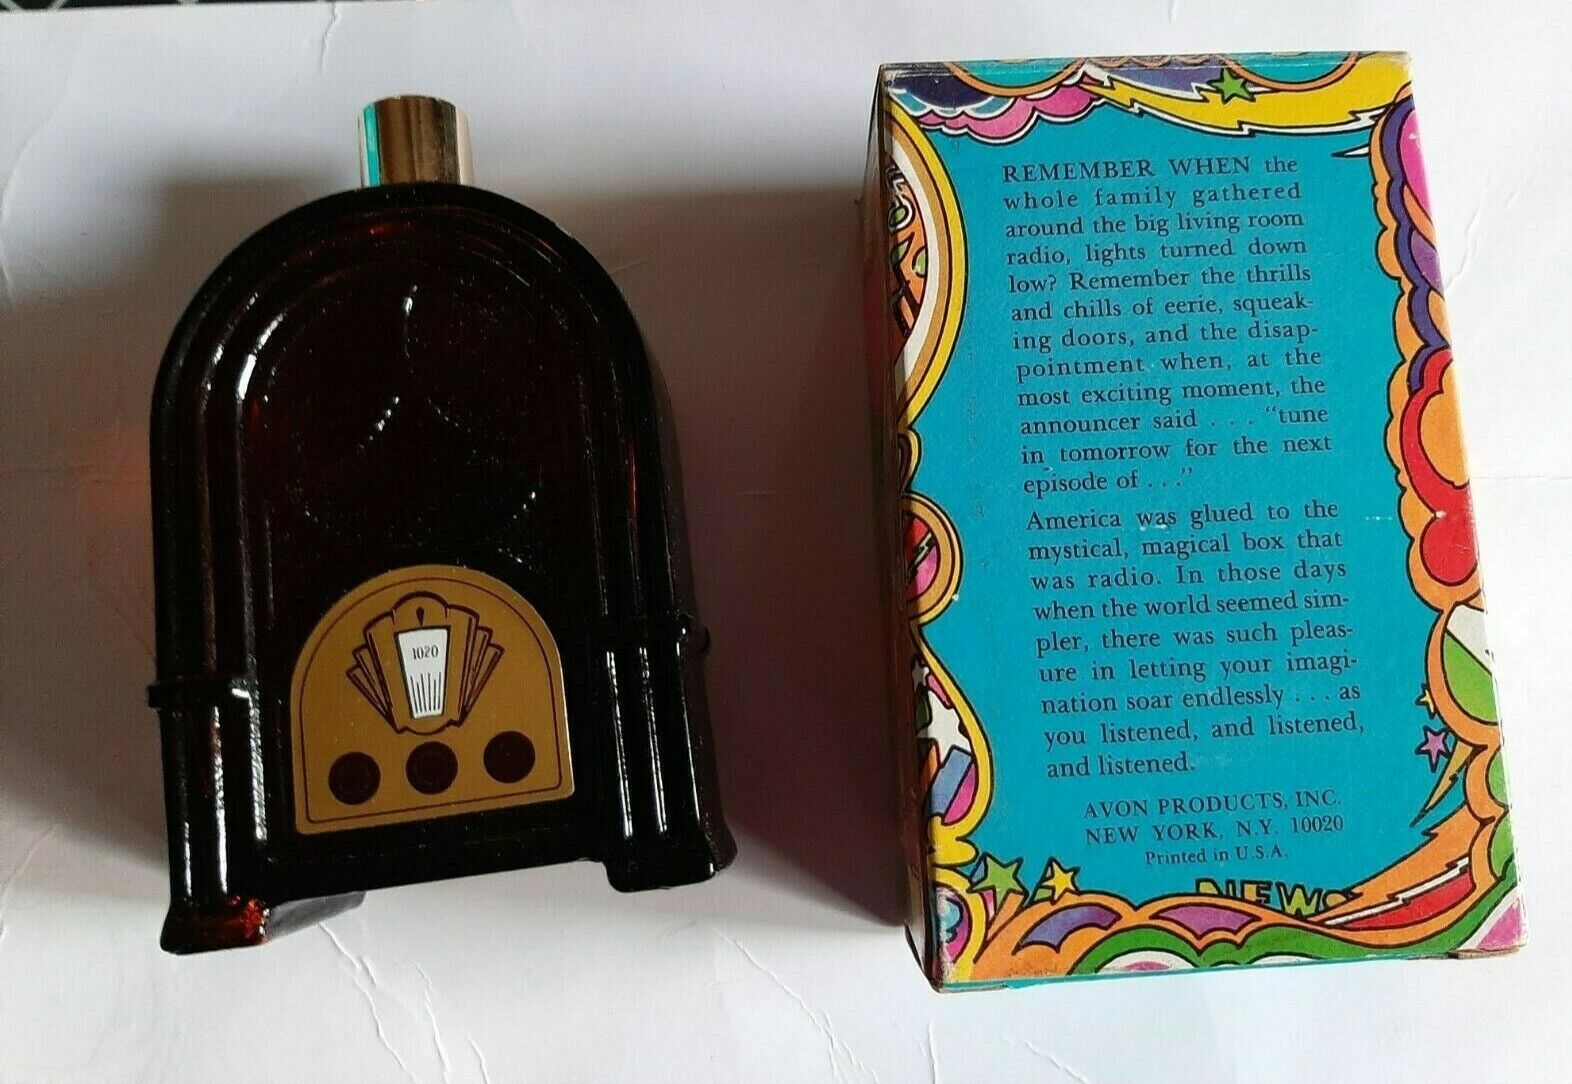 1020
REMEMBER WHEN the
whole family gathered
around the big living room
radio, lights turned down
low? Remember the thrills
and chills of eerie, squeak-
ing doors, and the disap-
pointment when, at the
most exciting moment, the
announcer said . . . "tune
in tomorrow for the next
episode of . . ."
America was glued to the
mystical, magical box that
was radio. In those days
when the world seemed sim-
pler, there was such pleas-
ure in letting your imagi-
nation soar endlessly . . . as
you listened, and listened,
and listened.
AVON PRODUCTS, INC.
NEW YORK, N.Y. 10020
Printed in U.S.A.
NEWS